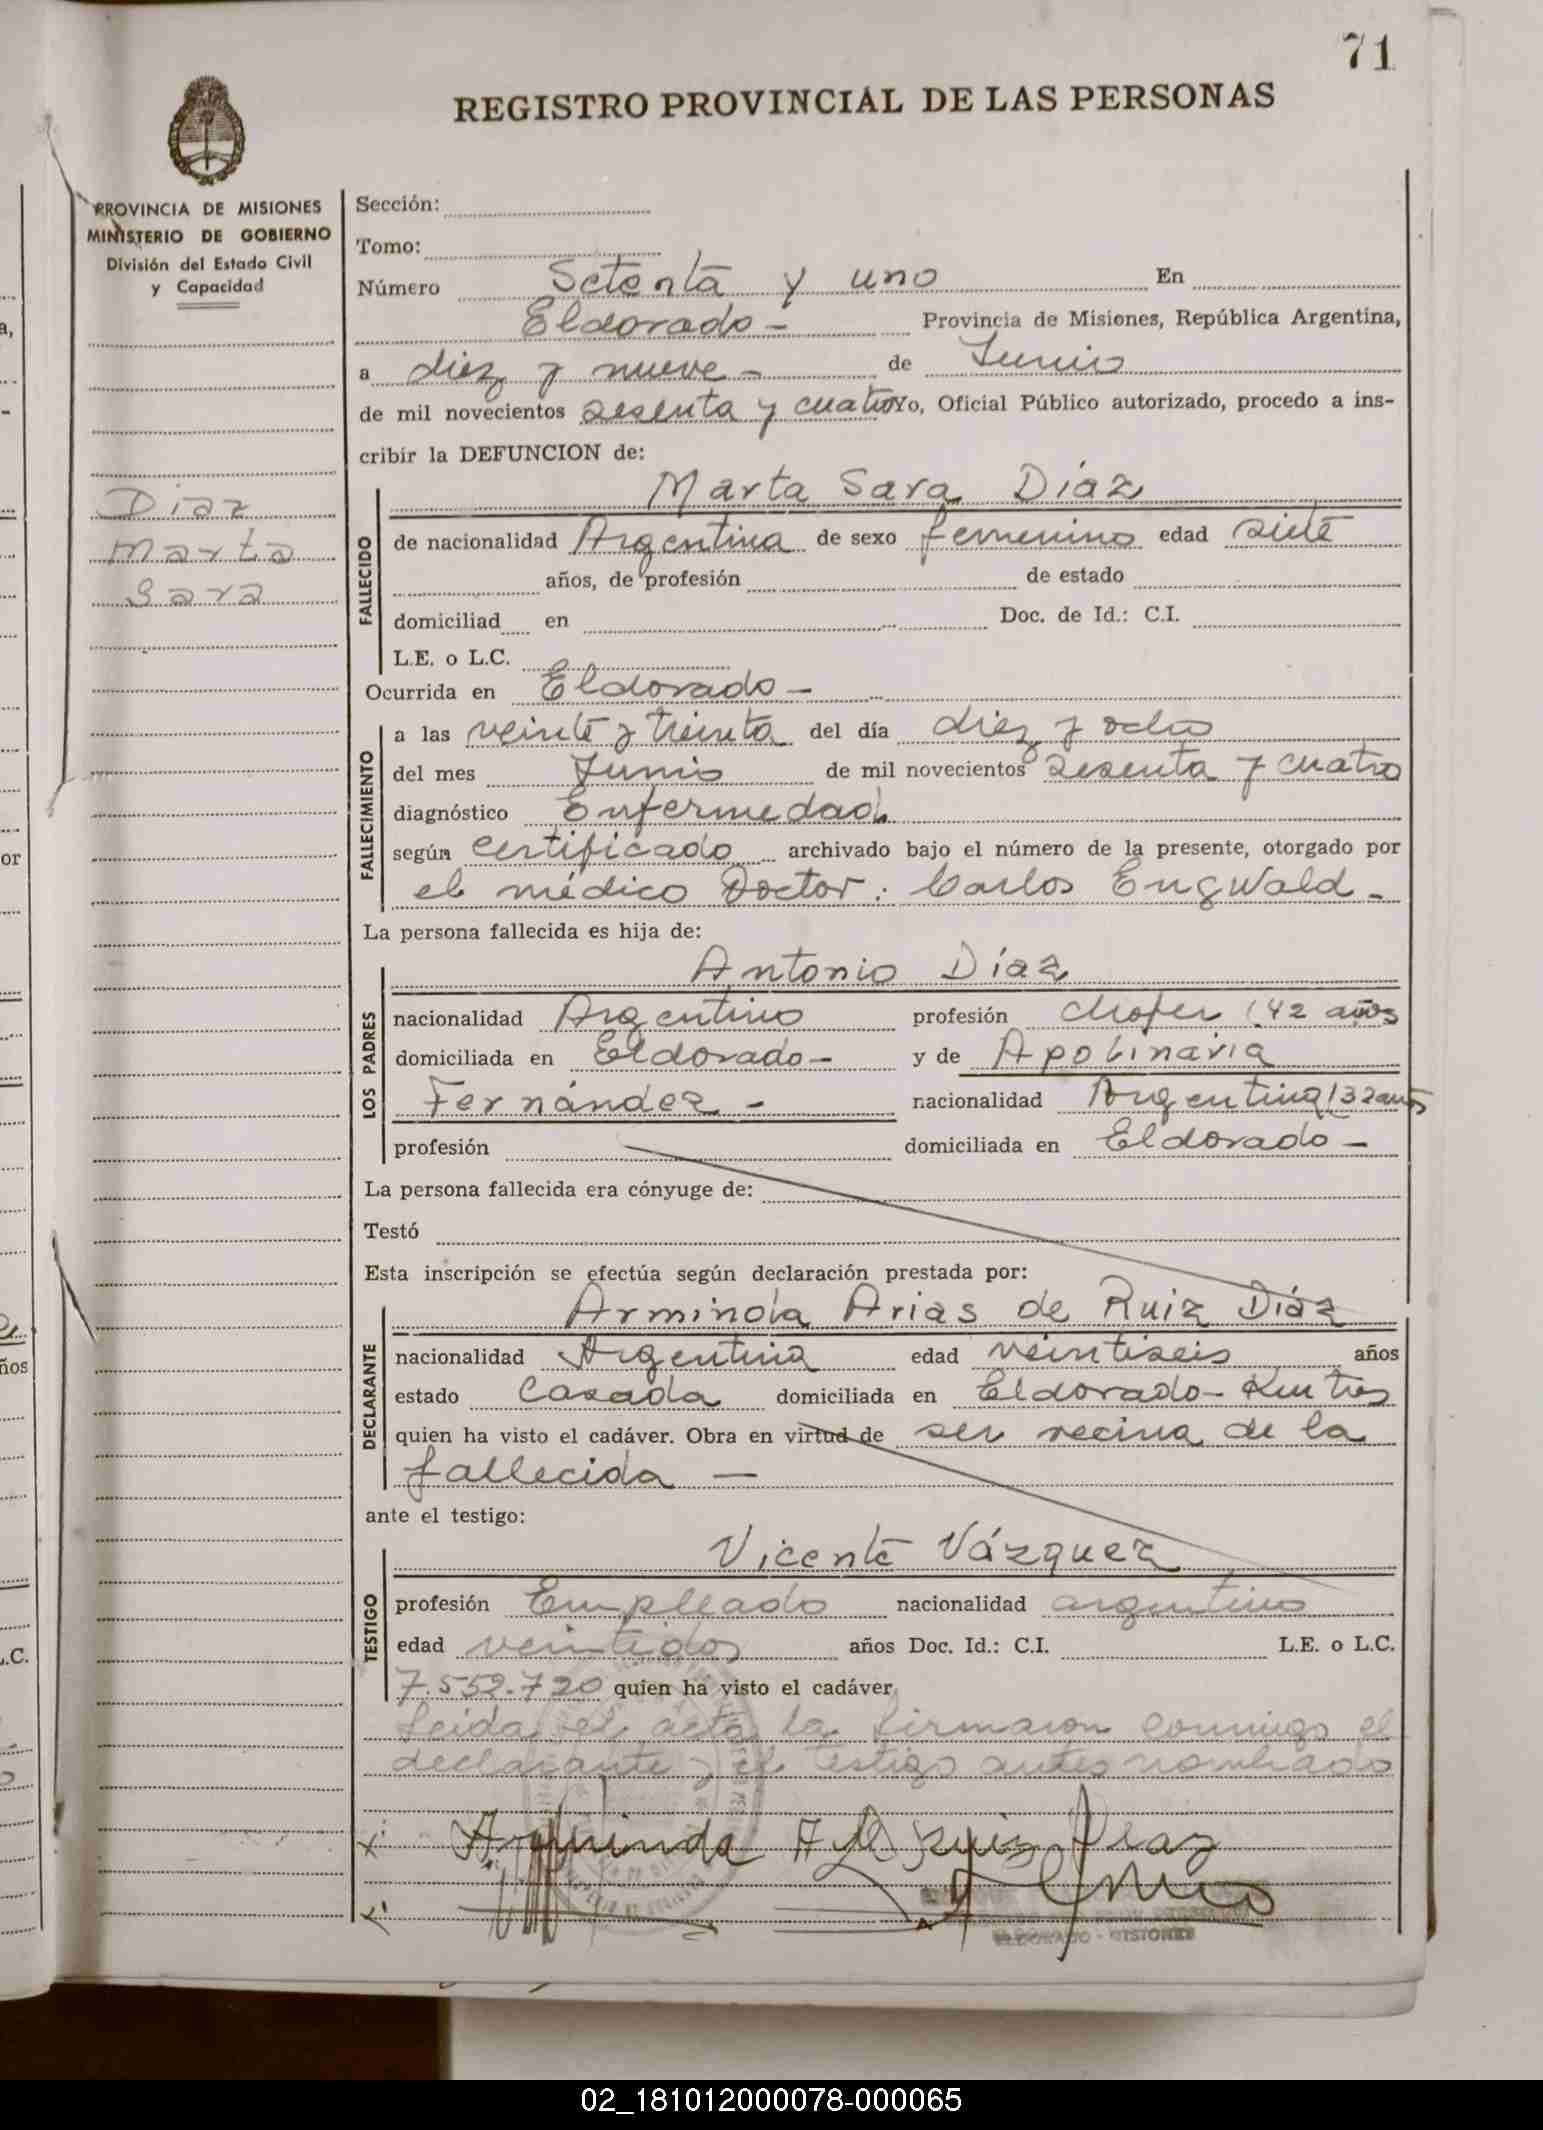 71
REGISTRO PROVINCIAL DE LAS PERSONAS
PROVINCIA DE MISIONES
MINISTERIO DE GOBIERNO
División del Estado Civil
y Capacidad
Diaz
Marta
Sara
Sección:
Tomo:
Número Setenta y uno En
Eldorado - Provincia de Misiones, República Argentina,
a diez y nueve - de Junio
de mil novecientos sesenta y cuatro Yo, Oficial Público autorizado, procedo a ins-
cribir la DEFUNCION de:
Marta Sara Díaz
FALLECIDO
de nacionalidad Argentina de sexo femenino edad siete
años, de profesión de estado
domiciliad en Doc. de Id.: C.I.
L.E. o L.C.
Ocurrida en Eldorado -
FALLECIMIENTO
a las veinte y treinta del día diez y ocho
del mes Junio de mil novecientos sesenta y cuatro
diagnóstico Enfermedad
según certificado archivado bajo el número de la presente, otorgado por
el médico Doctor: Carlos Engwald -
La persona fallecida es hija de:
LOS PADRES
Antonio Díaz
nacionalidad Argentino profesión Chofer (42 años
domiciliada en Eldorado - y de Apolinaria
Fernández - nacionalidad Argentina (32 años
profesión domiciliada en Eldorado -
La persona fallecida era cónyuge de:
Testó
Esta inscripción se efectúa según declaración prestada por:
DECLARANTE
Arminda Arias de Ruiz Díaz
nacionalidad Argentina edad veintiseis años
estado Casada domiciliada en Eldorado - Km tres
quien ha visto el cadáver. Obra en virtud de ser vecina de la
fallecida -
ante el testigo:
TESTIGO
Vicente Vázquez
profesión Empleado nacionalidad argentino
edad veintidos años Doc. Id.: C.I. L.E. o L.C.
7.552.720 quien ha visto el cadáver
Leida el acta la firmaron conmigo el
declarante y el testigo antes nombrado
Arminda A de Ruiz Diaz
ELDORADO - MISIONES
02_181012000078-000065